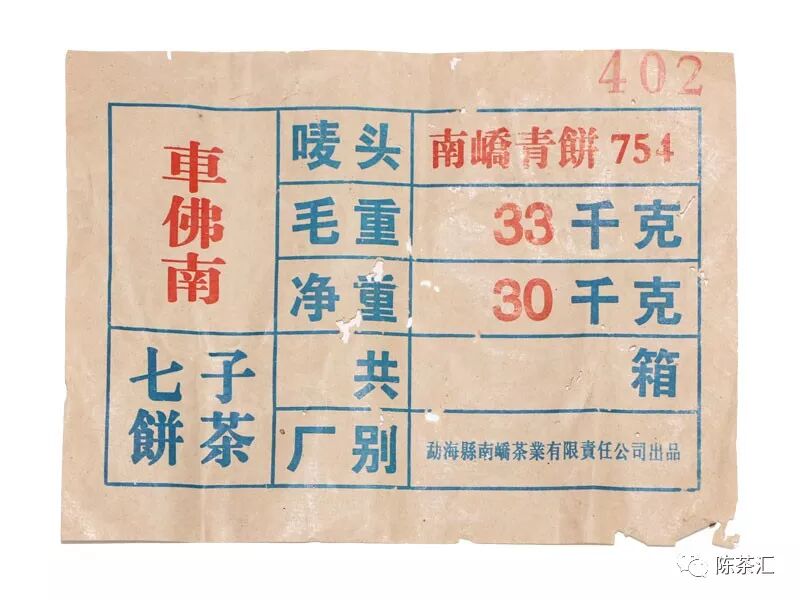 402
車佛南
唛头 南嶠青餅 754
毛重 33 千克
净重 30 千克
七子
餅茶
共 箱
厂别 勐海縣南嶠茶業有限責任公司出品
陈茶汇